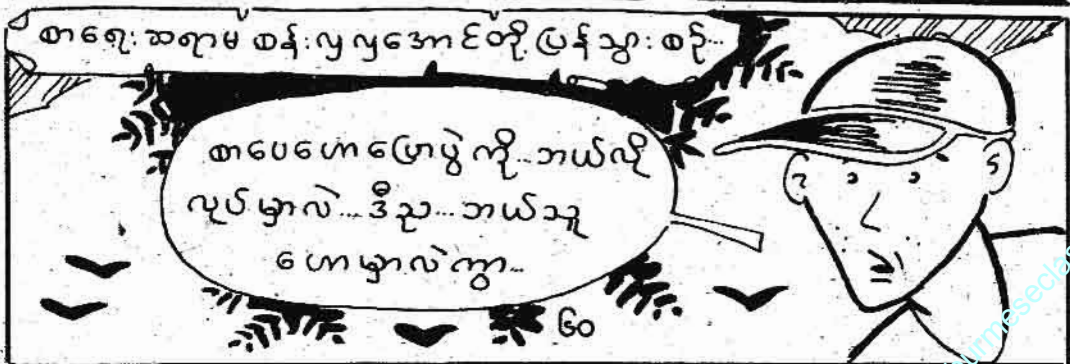 စာရေးဆရာမ စန်းလှလှအောင်တို့ ပြန်သွားစဉ်...
စာပေဟောပြောပွဲကို...ဘယ်လို
လုပ်မှာလဲ...ဒီည...ဘယ်သူ
ဟောမှာလဲကွာ...
၆၀